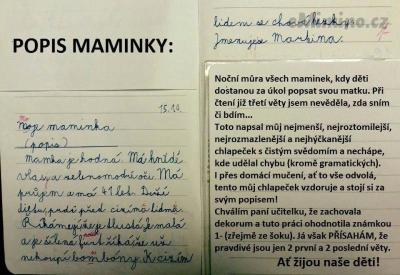 POPIS MAMINKY:
eMimino.cz
lidem se chová hezky.
Jmenuje se Martina.
15.10.
Moje maminka
(popis)
mamka je hodná. Má hnědé
vlasy a zelenomodré oči. Má
průjem a má 41 let. Drží
dietu, prdí před cizíma lidma.
a je šílená furt říká že už
nekoupí bonbony. K cizím
Noční můra všech maminek, kdy děti
dostanou za úkol popsat svou matku. Při
čtení již třetí věty jsem nevěděla, zda sním
či bdím...
Toto napsal můj nejmenší, nejroztomilejší,
nejrozmazlenější a nejhýčkanější
chlapeček s čistým svědomím a nechápe,
kde udělal chybu (kromě gramatických).
I přes domácí mučení, ať to vše odvolá,
tento můj chlapeček vzdoruje a stojí si za
svým popisem!
Chválím paní učitelku, že zachovala
dekorum a tuto práci ohodnotila známkou
1- (zřejmě ze šoku). Já však PŘÍSAHÁM, že
pravdivé jsou jen 2 první a 2 poslední věty.
Ať žijou naše děti!